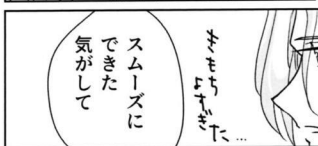 きもち
よすぎた…
スムーズに
できた
気がして